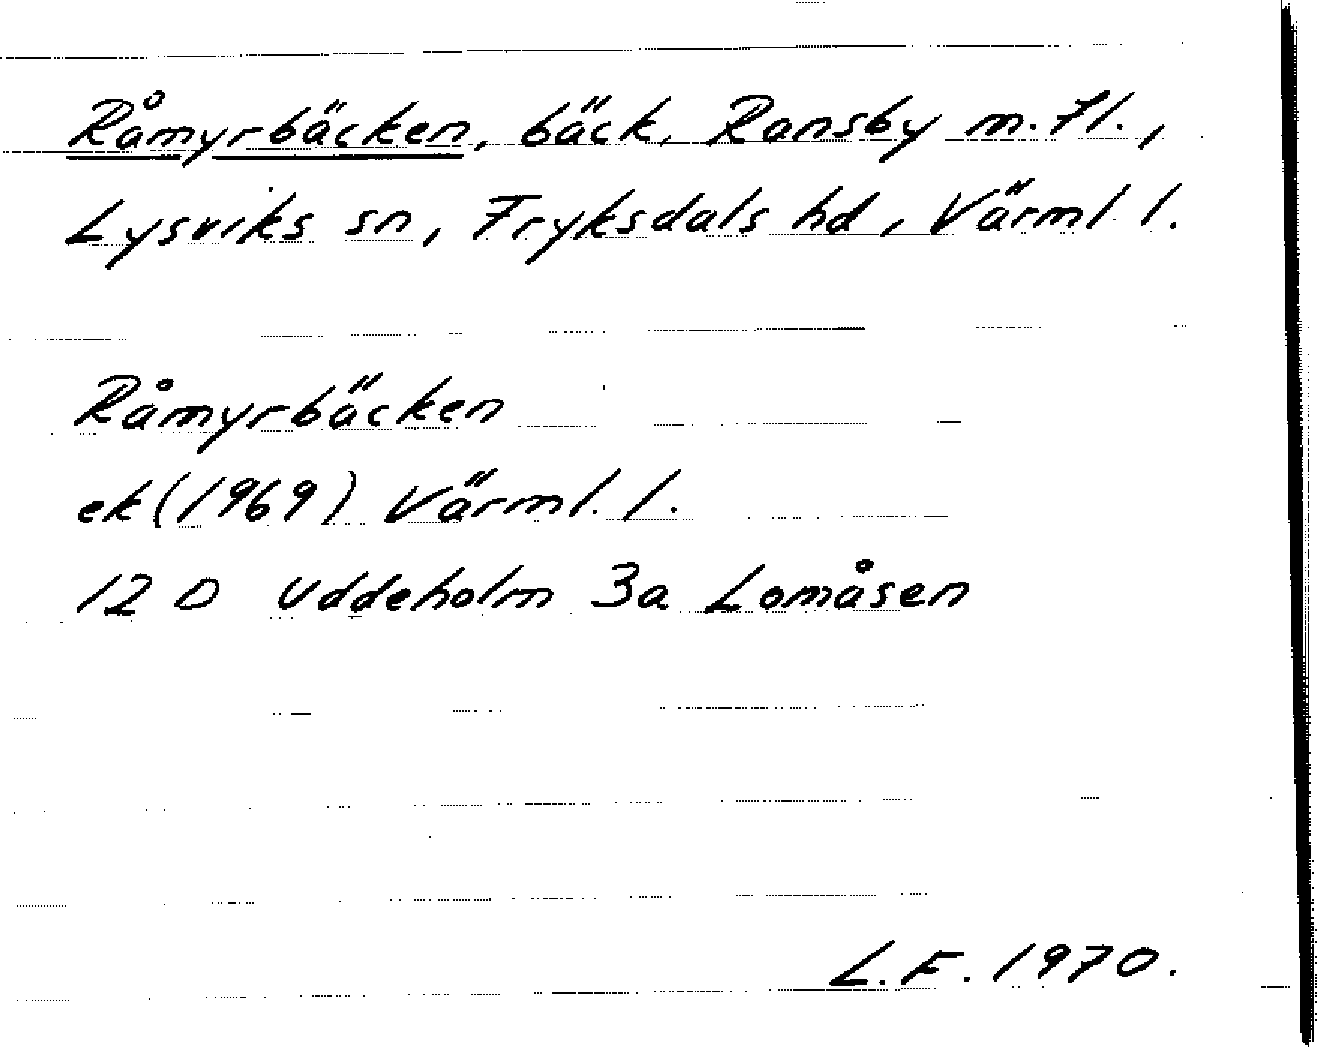 Råmyrbäcken, bäck, Ransby m.fl.,
Lysviks sn, Fryksdals hd, Värml l.
Råmyrbäcken
ek (1969) Värml. l.
12 D Uddeholm 3a Lomåsen
L.F. 1970.